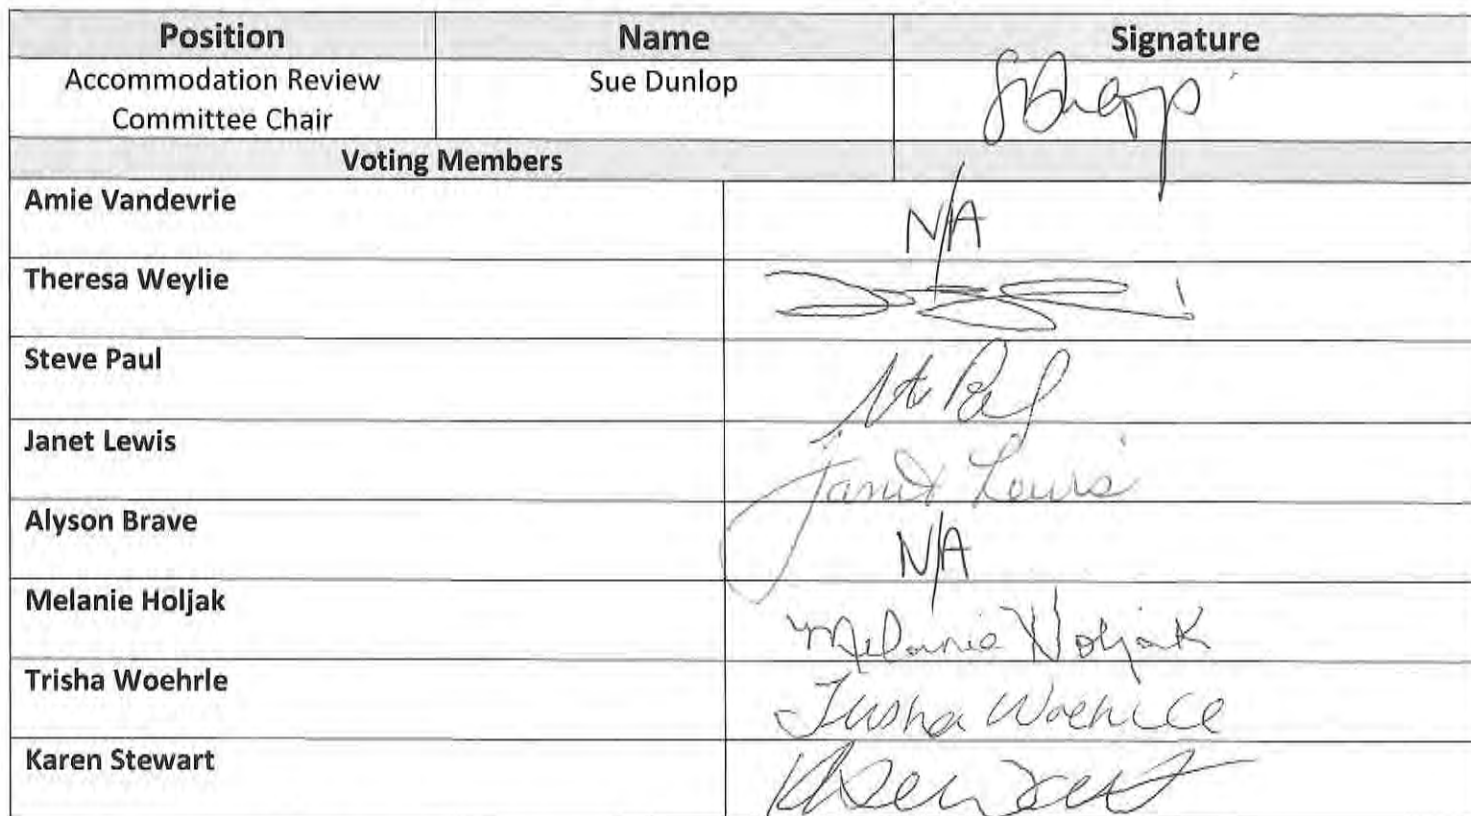 Position Name Signature
Accommodation Review Sue Dunlop
Committee Chair
Voting Members
Amie Vandevrie N/A
Theresa Weylie
Steve Paul
Janet Lewis Janet Lewis
Alyson Brave N/A
Melanie Holjak Melanie Holjak
Trisha Woehrle Trisha Woehrle
Karen Stewart